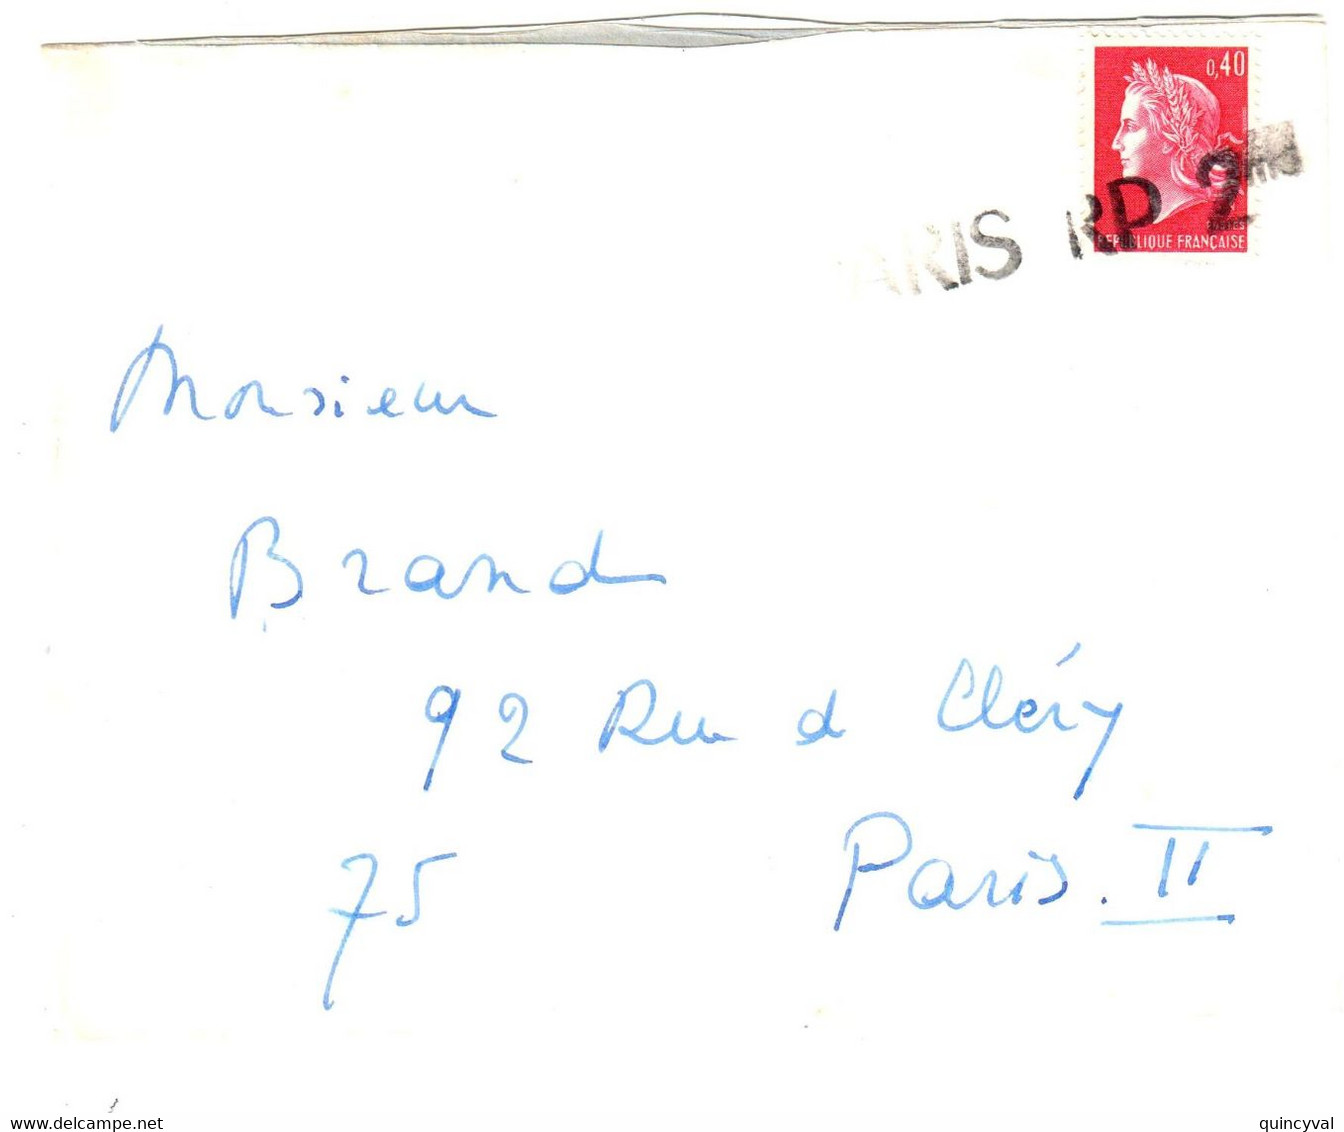 0,40
RÉPUBLIQUE FRANÇAISE
PARIS RP 2
Monsieur
Brand
92 Rue de Cléry
75 Paris. II
© delcampe.net
quincyval